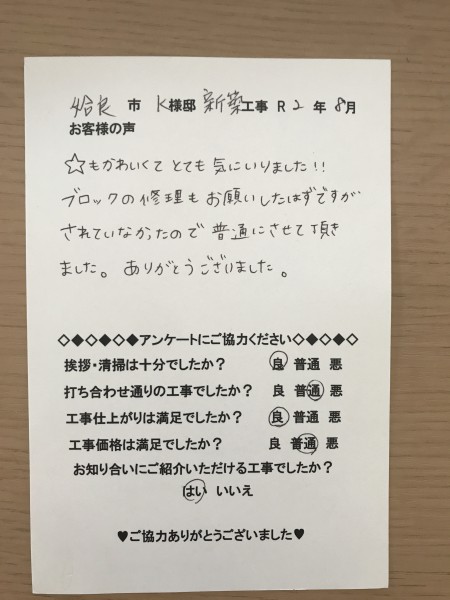 姶良 市 K様邸 新築工事 R2年 8月
お客様の声
☆もかわいくて とても 気にいりました!!
ブロックの修理も お願いしたはずですが
されていなかったので 普通にさせて頂き
ました。ありがとうございました。
◇◆◇◆◇◆アンケートにご協力ください◇◆◇◆◇
挨拶・清掃は十分でしたか? 良 普通 悪
打ち合わせ通りの工事でしたか? 良 普通 悪
工事仕上がりは満足でしたか? 良 普通 悪
工事価格は満足でしたか? 良 普通 悪
お知り合いにご紹介いただける工事でしたか?
はい いいえ
♥ご協力ありがとうございました♥